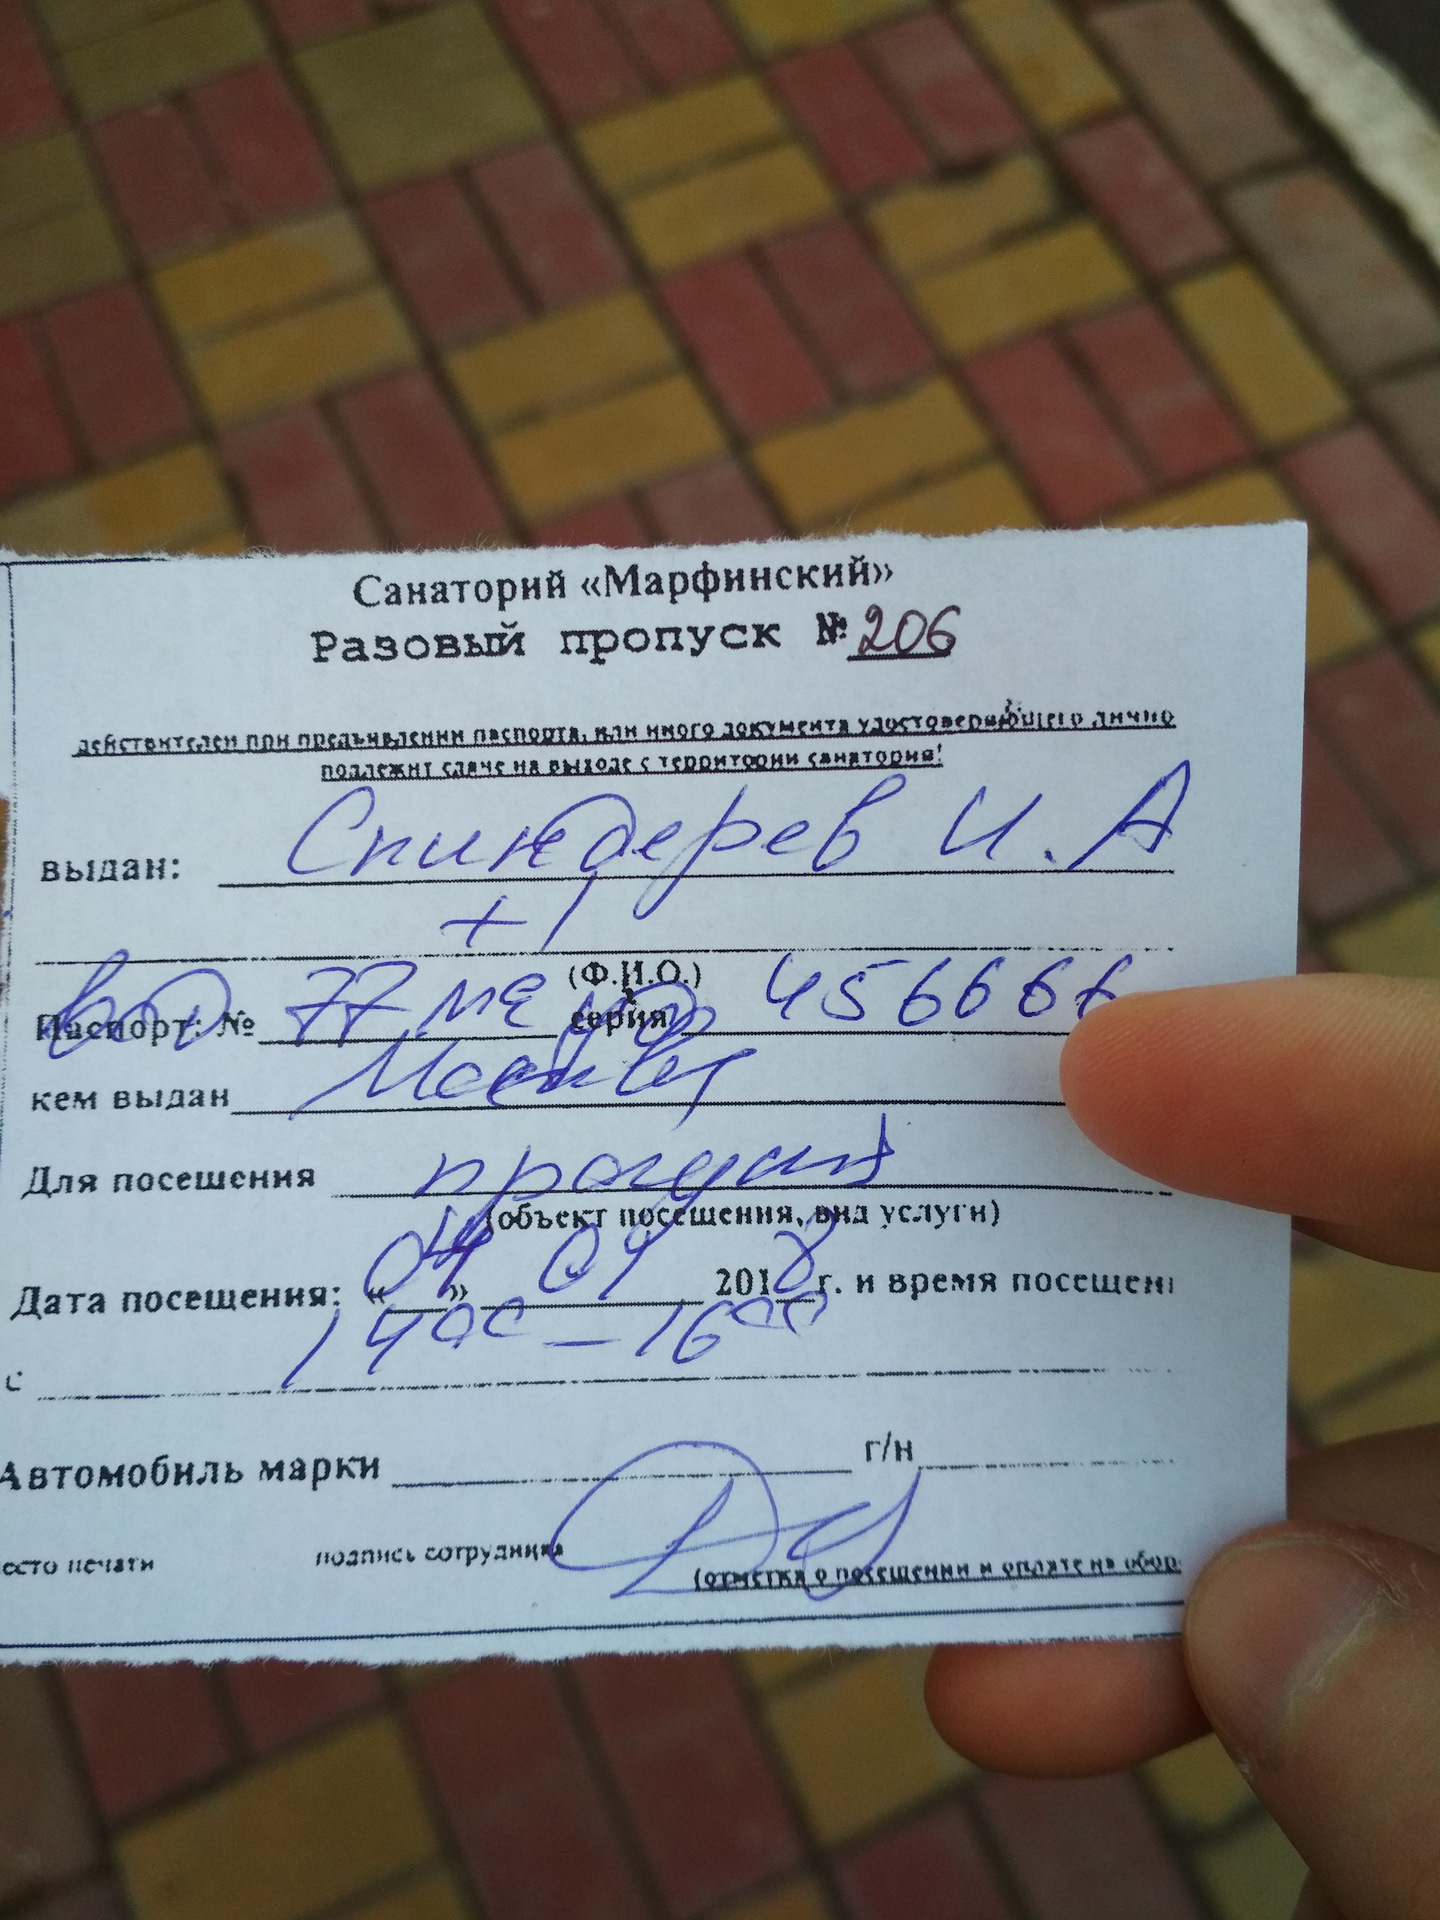 Санаторий «Марфинский»
Разовый пропуск № 206
действителен при предъявлении паспорта, или иного документа удостоверяющего лично
подлежит сдаче на выходе с территории санатория!
выдан: Спиндерев И. А
+1
(Ф.И.О.)
Паспорт: № 77 серия 456666
кем выдан Москвы
Для посещения прогулка
(объект посещения, вид услуги)
Дата посещения: «04» 01 2018 г. и время посещени
с 14 00 – 16 00
Автомобиль марки г/н
есто печати подпись сотрудника
(отметка о посещении и оплате на обор